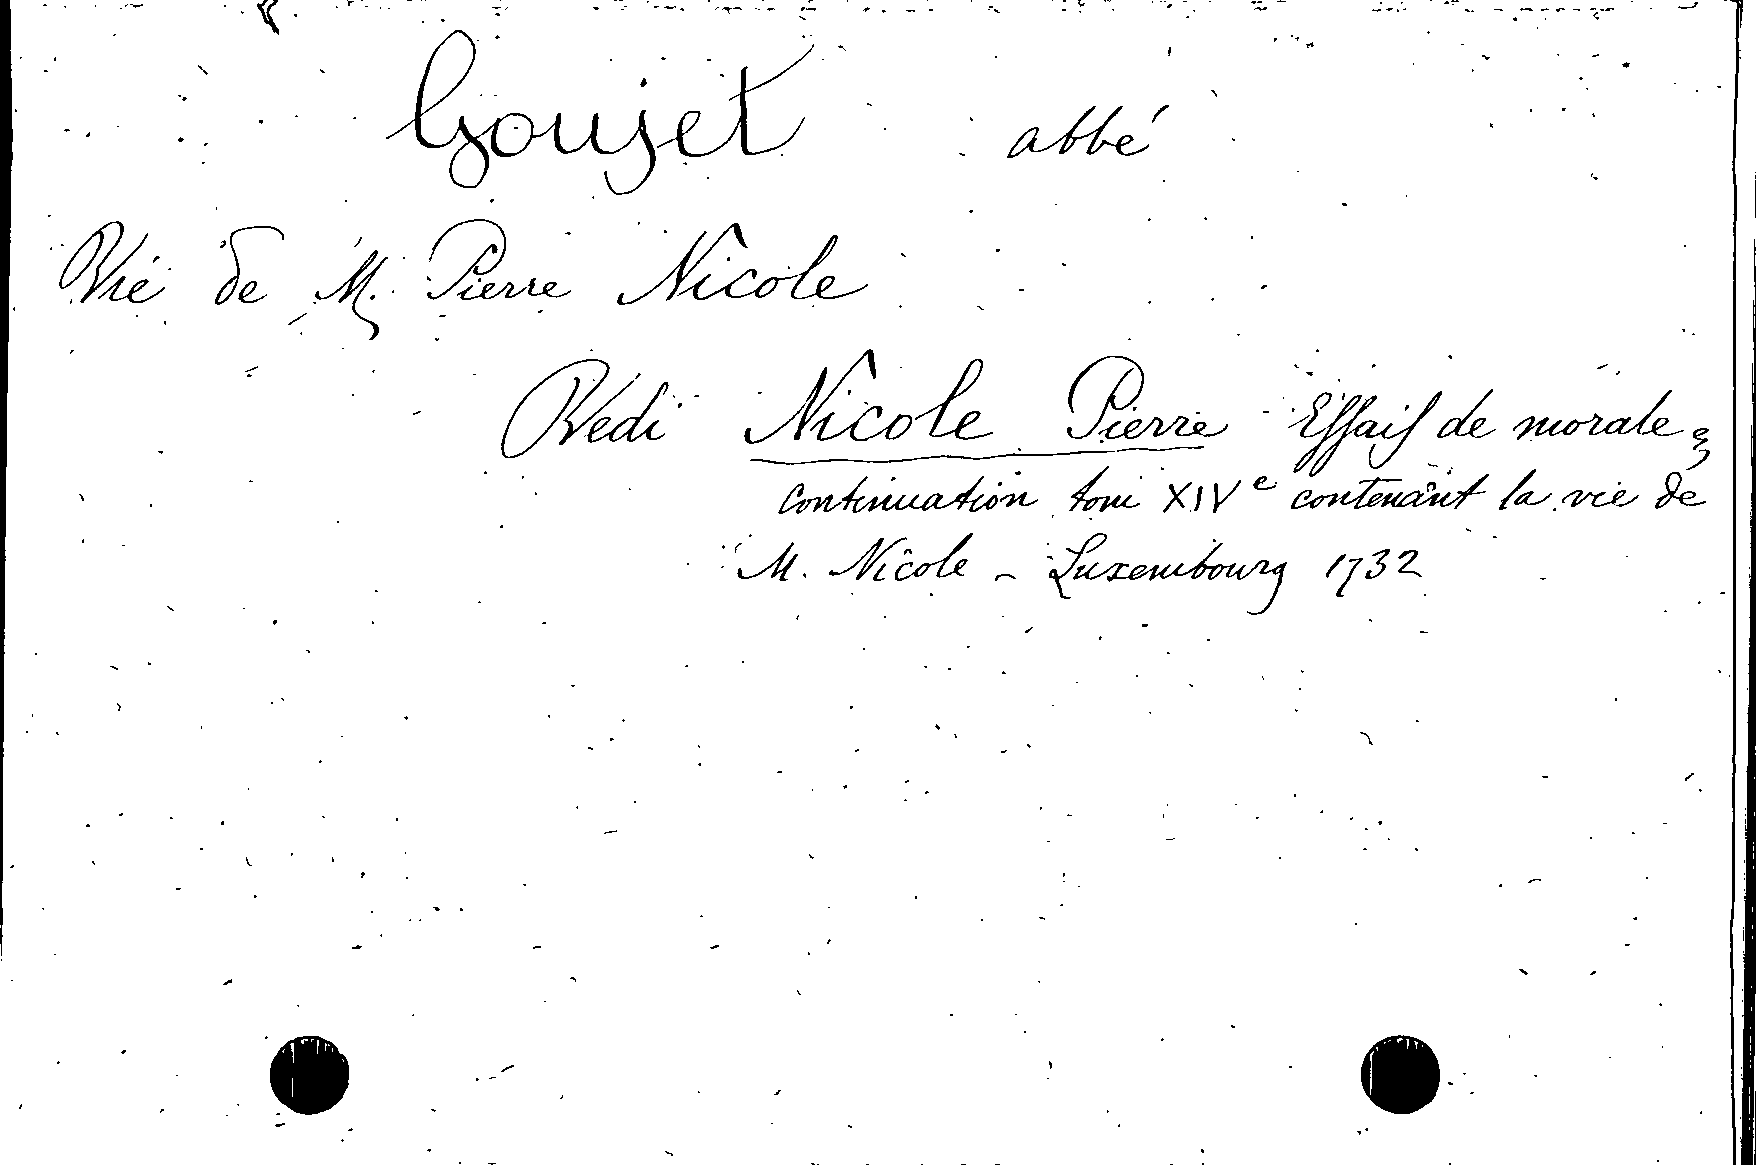 Goujet abbé
Vie de M. Pierre Nicole
Vedi Nicole Pierre Essais de morale,
continuation tom XIVe contenant la vie de
M. Nicole - Luxembourg 1732